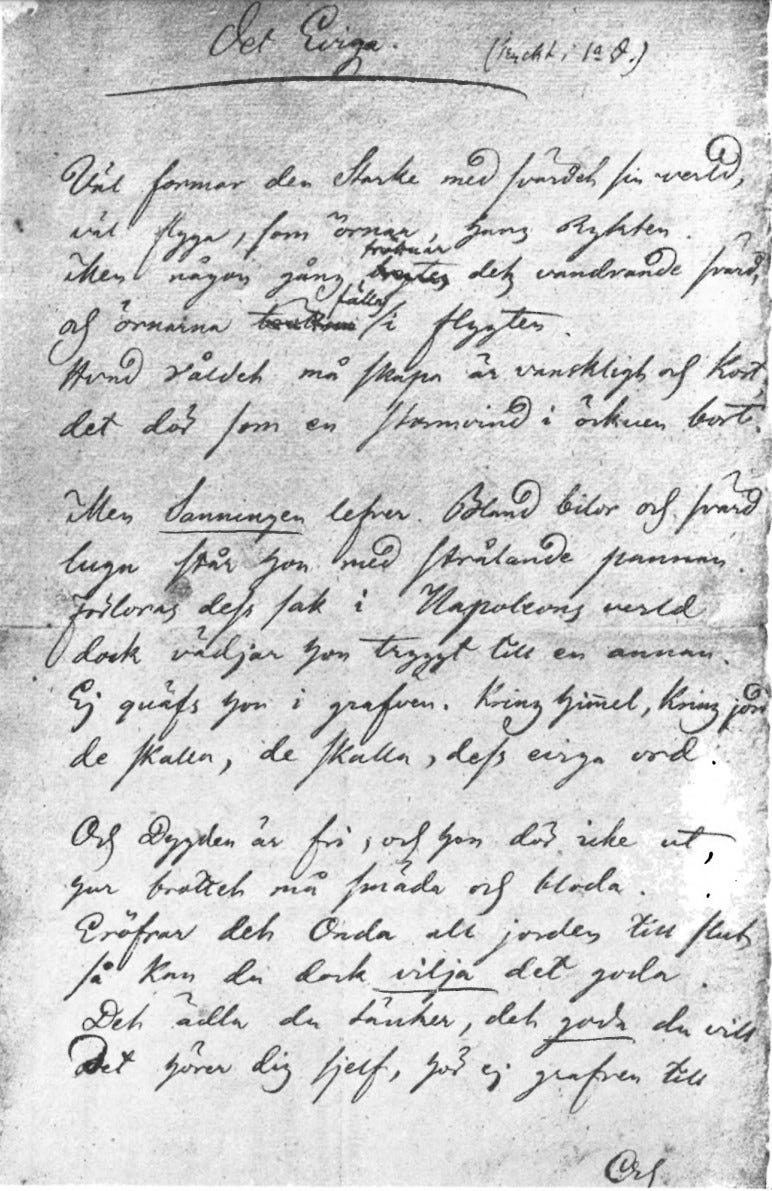 Det Eviga.
(tryckt i 1a D.)
Väl formar den Starke med svärdet sin verld,
väl flyga, som örnar, hans Rykten.
trött är
Men någon gång brytes dets vandrande svärd,
fällas
och örnarna i flygten.
Hvad våldet må skapa är vanskligt och kort,
det dör som en stormvind i öcknen bort.
Men Sanningen lefver. Bland bilor och svärd
lugn står hon med strålande pannan.
Förloras dess sak i Napoleons verld
dock vädjar hon tryggt till en annan.
Ej quäfs hon i grafven. Kring himmel, kring jord
de skalla, de skalla, dess eviga ord.
Och Dygden är fri, och hon dör icke ut,
hur brottet må smäda och bloda.
Eröfrar det Onda all jorden till slut
så kan du dock vilja det goda.
Det ädla du tänker, det goda du vill
Det hörer dig sjelf, hör ej grafven till
Och